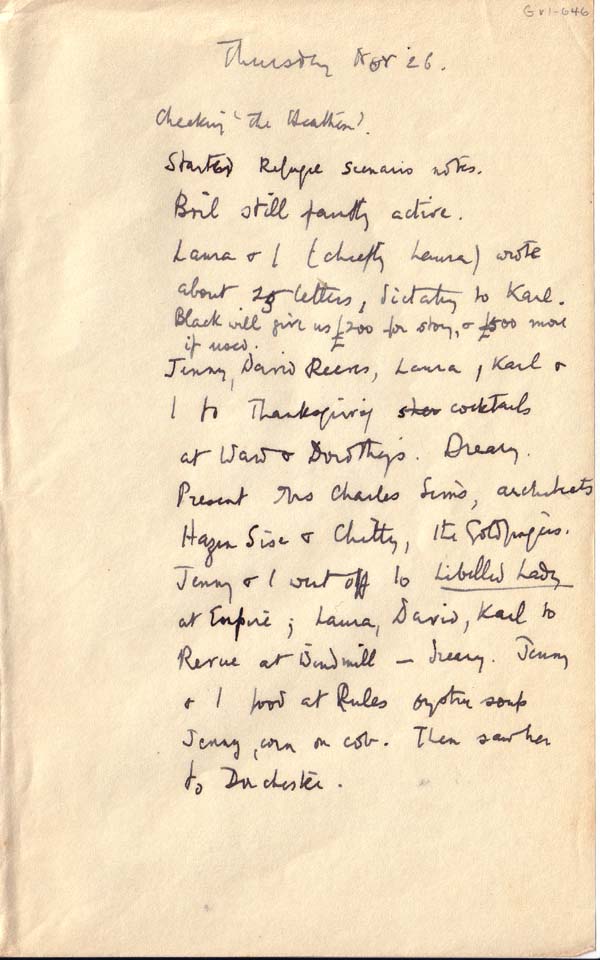 GV1-646
Thursday Nov 26.
Checking 'The Heathen'.
Started Refugee scenario notes.
Bril still faintly active.
Laura & I (chiefly Laura) wrote
about 25 letters, dictating to Karl.
Black will give us £200 for story, & £500 more
if used.
Jenny, David Reeves, Laura, Karl &
I to Thanksgiving cocktails
at Ward & Dorothy's. Dreary.
Present Mrs Charles Sims, architects
Hazen Sise & Chitty, the Goldfingers.
Jenny & I went off to Libelled Lady
at Empire; Laura, David, Karl to
Revue at Windmill – dreary. Jenny
& I food at Rules oyster soup
Jenny, corn on cob. Then saw her
to Dorchester.